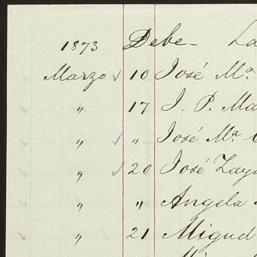 1873 Debe - La
Marzo 10 José Mª
" 17 J. P. Ma
" " José Mª
" 20 José Zaya
" " Angela
" 21 Miguel